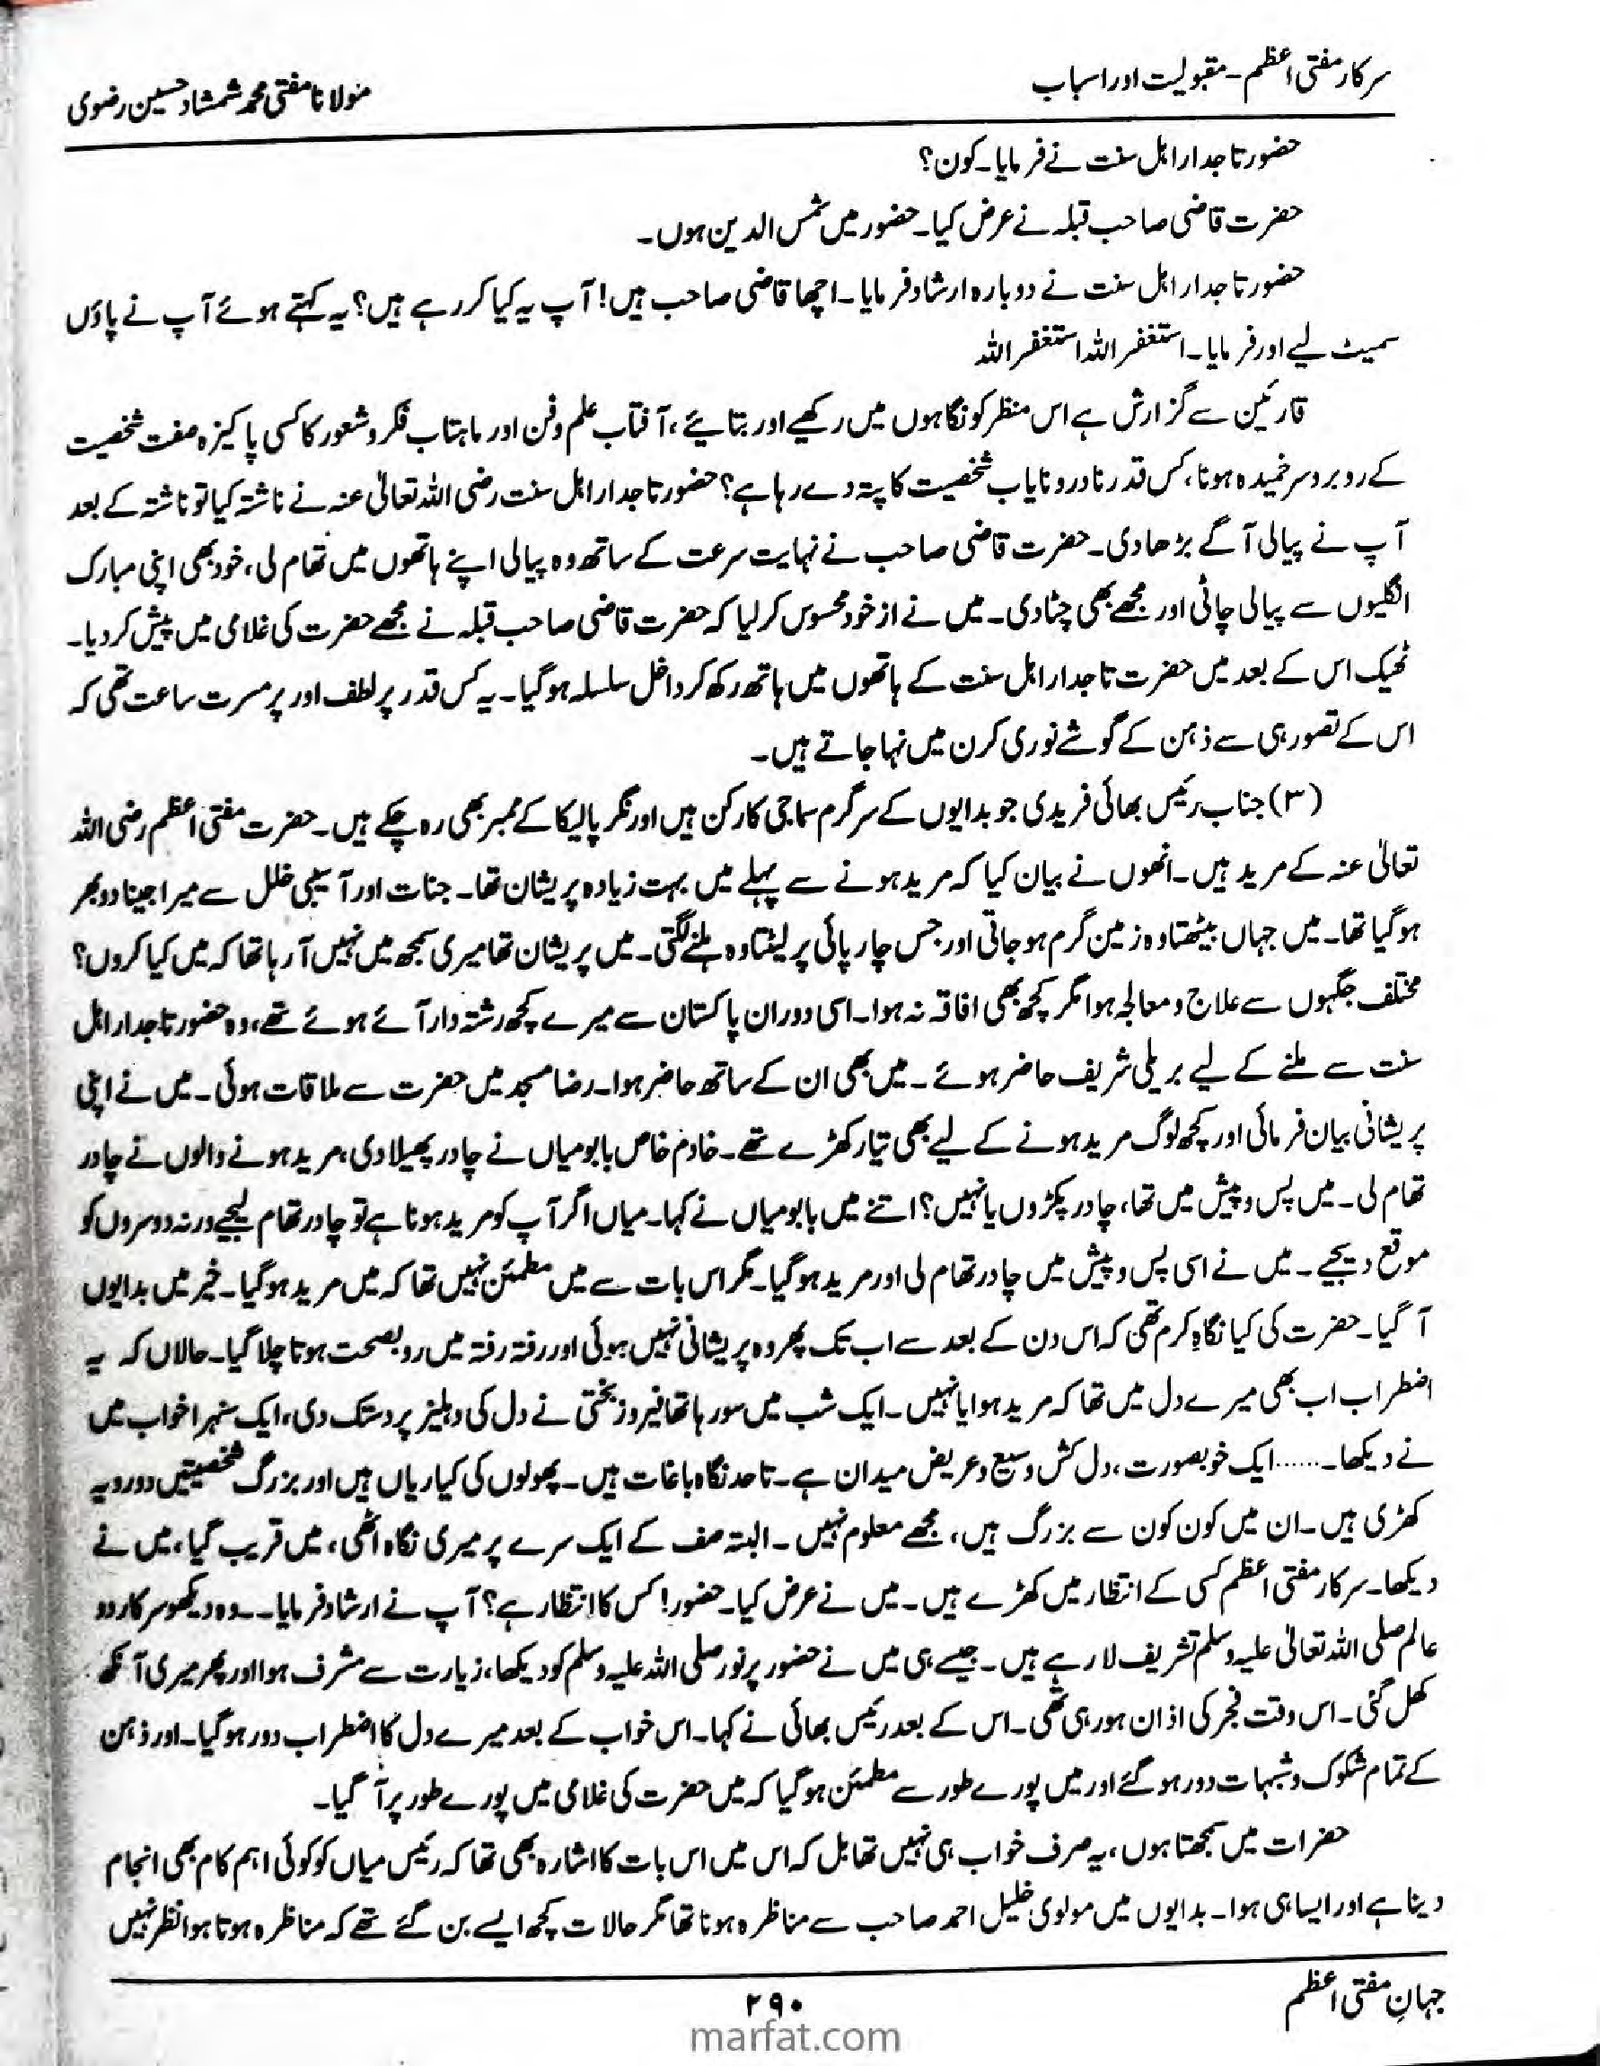 سرکار مفتی اعظم - مقبولیت اور اسباب
مولانا مفتی محمد شمشاد حسین رضوی
حضور تاجدار اہل سنت نے فرمایا۔ کون؟
حضرت قاضی صاحب قبلہ نے عرض کیا۔ حضور میں شمس الدین ہوں۔
حضور تاجدار اہل سنت نے دوبارہ ارشاد فرمایا۔ اچھا قاضی صاحب ہیں! آپ یہ کیا کر رہے ہیں؟ یہ کہتے ہوئے آپ نے پاؤں
سمیٹ لیے اور فرمایا۔ استغفر اللہ استغفر اللہ
قارئین سے گزارش ہے اس منظر کو نگاہوں میں رکھیے اور بتایئے، آفتاب علم وفن اور ماہتاب فکر و شعور کا کسی پاکیزہ صفت شخصیت
کے روبرو سر خمیدہ ہونا، کس قدر نادر و نایاب شخصیت کا پتہ دے رہا ہے؟ حضور تاجدار اہل سنت رضی اللہ تعالیٰ عنہ نے ناشتہ کیا تو ناشتہ کے بعد
آپ نے پیالی آگے بڑھا دی۔ حضرت قاضی صاحب نے نہایت سرعت کے ساتھ وہ پیالی اپنے ہاتھوں میں تھام لی، خود بھی اپنی مبارک
انگلیوں سے پیالی چاٹی اور مجھے بھی چٹا دی۔ میں نے از خود محسوس کر لیا کہ حضرت قاضی صاحب قبلہ نے مجھے حضرت کی غلامی میں پیش کر دیا۔
ٹھیک اس کے بعد میں حضرت تاجدار اہل سنت کے ہاتھوں میں ہاتھ رکھ کر داخل سلسلہ ہوگیا۔ یہ کس قدر پر لطف اور پر مسرت ساعت تھی کہ
اس کے تصور ہی سے ذہن کے گوشے نوری کرن میں نہا جاتے ہیں۔
(۳) جناب رئیس بھائی فریدی جو بدایوں کے سرگرم سماجی کارکن ہیں اور نگر پالیکا کے ممبر بھی رہ چکے ہیں۔ حضرت مفتی اعظم رضی اللہ
تعالیٰ عنہ کے مرید ہیں۔ انھوں نے بیان کیا کہ مرید ہونے سے پہلے میں بہت زیادہ پریشان تھا۔ جنات اور آسیبی خلل سے میرا جینا دوبھر
ہوگیا تھا۔ میں جہاں بیٹھتا وہ زمین گرم ہو جاتی اور جس چارپائی پر لیٹتا وہ ہلنے لگتی۔ میں پریشان تھا میری سمجھ میں نہیں آرہا تھا کہ میں کیا کروں؟
مختلف جگہوں سے علاج و معالجہ ہوا مگر کچھ بھی افاقہ نہ ہوا۔ اسی دوران پاکستان سے میرے کچھ رشتہ دار آئے ہوئے تھے، وہ حضور تاجدار اہل
سنت سے ملنے کے لیے بریلی شریف حاضر ہوئے ۔ میں بھی ان کے ساتھ حاضر ہوا۔ رضا مسجد میں حضرت سے ملاقات ہوئی۔ میں نے اپنی
پریشانی بیان فرمائی اور کچھ لوگ مرید ہونے کے لیے بھی تیار کھڑے تھے۔ خادم خاص بابو میاں نے چادر پھیلا دی، مرید ہونے والوں نے چادر
تھام لی۔ میں پس و پیش میں تھا، چادر پکڑوں یا نہیں؟ اتنے میں بابو میاں نے کہا۔ میاں اگر آپ کو مرید ہونا ہے تو چادر تھام لیجیے ورنہ دوسروں کو
موقع دیجیے ۔ میں نے اسی پس و پیش میں چادر تھام لی اور مرید ہوگیا۔ مگر اس بات سے میں مطمئن نہیں تھا کہ میں مرید ہوگیا۔ خیر میں بدایوں
آ گیا۔ حضرت کی کیا نگاہِ کرم تھی کہ اس دن کے بعد سے اب تک پھر وہ پریشانی نہیں ہوئی اور رفتہ رفتہ میں روبصحت ہوتا چلا گیا۔ حالاں کہ یہ
اضطراب اب بھی میرے دل میں تھا کہ مرید ہوا یا نہیں۔ ایک شب میں سو رہا تھا فیروز بختی نے دل کی دہلیز پر دستک دی، ایک سنہرا خواب میں
نے دیکھا۔......ایک خوبصورت، دل کش وسیع و عریض میدان ہے۔ تاحد نگاہ باغات ہیں۔ پھولوں کی کیاریاں ہیں اور بزرگ شخصیتیں دورویہ
کھڑی ہیں۔ ان میں کون کون سے بزرگ ہیں، مجھے معلوم نہیں ۔ البتہ صف کے ایک سرے پر میری نگاہ اٹھی، میں قریب گیا، میں نے
دیکھا۔ سرکار مفتی اعظم کسی کے انتظار میں کھڑے ہیں۔ میں نے عرض کیا۔ حضور! کس کا انتظار ہے؟ آپ نے ارشاد فرمایا۔۔۔ وہ دیکھو سرکار دو
عالم صلی اللہ تعالیٰ علیہ وسلم تشریف لا رہے ہیں۔ جیسے ہی میں نے حضور پرنور صلی اللہ علیہ وسلم کو دیکھا، زیارت سے مشرف ہوا اور پھر میری آنکھ
کھل گئی۔ اس وقت فجر کی اذان ہو رہی تھی۔ اس کے بعد رئیس بھائی نے کہا۔ اس خواب کے بعد میرے دل کا اضطراب دور ہوگیا۔ اور ذہن
کے تمام شکوک و شبہات دور ہوگئے اور میں پورے طور سے مطمئن ہوگیا کہ میں حضرت کی غلامی میں پورے طور پر آ گیا۔
حضرات میں سمجھتا ہوں، یہ صرف خواب ہی نہیں تھا بل کہ اس میں اس بات کا اشارہ بھی تھا کہ رئیس میاں کو کوئی اہم کام بھی انجام
دینا ہے اور ایسا ہی ہوا۔ بدایوں میں مولوی خلیل احمد صاحب سے مناظرہ ہونا تھا مگر حالات کچھ ایسے بن گئے تھے کہ مناظرہ ہوتا ہوا نظر نہیں
جہانِ مفتی اعظم
۲۹۰
marfat.com